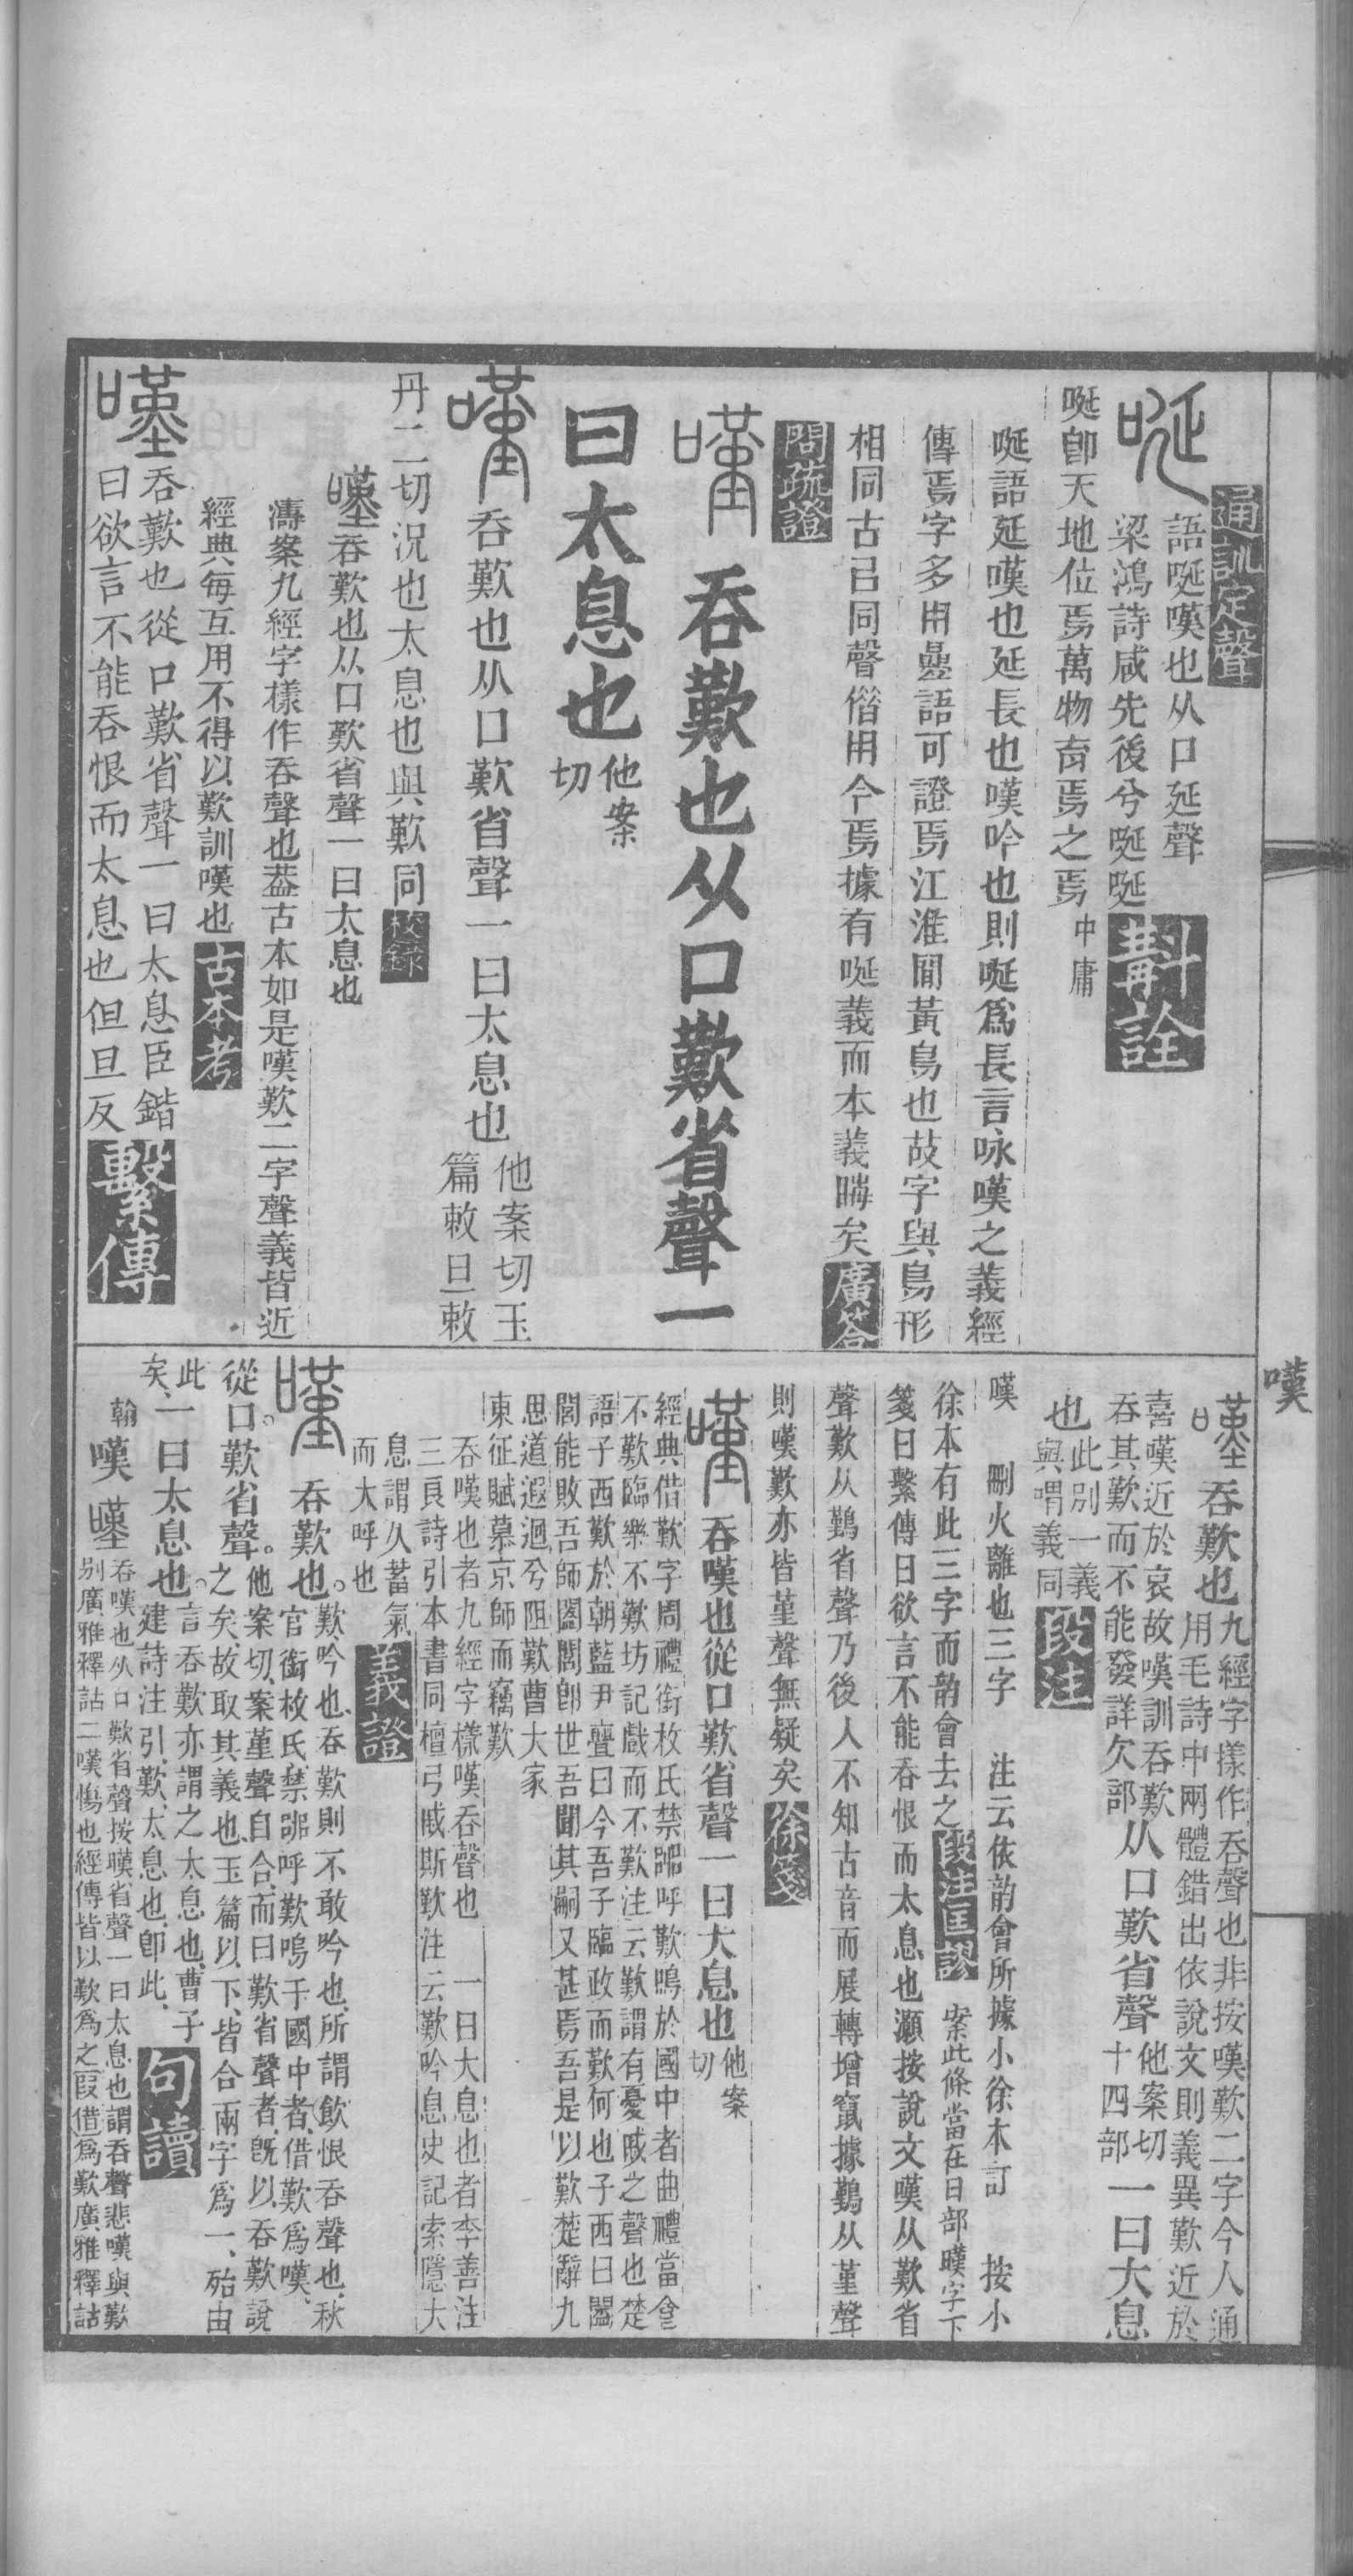 通訓定聲
語唌嘆也从口延聲
梁鴻詩咸先後兮唌唌
斠詮
唌卽天地位焉萬物育焉之焉
中庸
唌語延嘆也延長也嘆吟也則唌爲長言咏嘆之義經
傳焉字多用㬪語可證焉江淮閒黃鳥也故字與鳥形
相同古㠯同聲偕用今焉據有唌義而本義晦矣
廣答
問疏證
吞歎也从口歎省聲一
曰太息也
他案
切
吞歎也从口歎省聲一曰太息也
他案切玉
篇敕旦敕
丹二切況也太息也與歎同
校錄
吞歎也从口歎省聲一曰太息也
濤案九經字樣作吞聲也葢古本如是嘆歎二字聲義皆近
經典每互用不得以歎訓嘆也
古本考
吞歎也從口歎省聲一曰太息臣鍇
曰欲言不能吞恨而太息也但旦反
繫傳
嘆
吞歎也
九經字㨾作吞聲也非按嘆歎二字今人通
用毛詩中兩體錯出依說文則義異歎近於
喜嘆近於哀故嘆訓吞歎
吞其歎而不能發詳欠部
从口歎省聲
他案切
十四部
一曰大息
也
此別一義
與喟義同
段注
嘆 刪火離也三字 注云依韵會所據小徐本訂 按小
徐本有此三字而韵會去之
段注匡謬
案此條當在日部暵字下
箋曰繫傳曰欲言不能吞恨而太息也灝按說文嘆从歎省
聲歎从鷬省聲乃後人不知古音而展轉增竄據鷬从堇聲
則嘆歎亦皆堇聲無疑矣
徐箋
吞嘆也從口歎省聲一曰大息也
他案
切
經典借歎字周禮銜枚氏禁嘂呼歎鳴於國中者曲禮當食
不歎臨樂不歎坊記戲而不歎注云歎謂有憂戚之聲也楚
語子西歎於朝藍尹亹曰今吾子臨政而歎何也子西曰闔
閭能敗吾師闔閭卽世吾聞其嗣又甚焉吾是以歎楚辭九
思道遐迥兮阻歎曹大家
東征賦慕京師而竊歎
吞嘆也者九經字樣嘆吞聲也 一曰大息也者李善注
三良詩引本書同檀弓戚斯歎注云歎吟息史記索隱大
息謂久蓄氣
而大呼也
義證
吞歎也。
歎、吟也、吞歎則不敢吟也、所謂飮恨吞聲也、秋
官銜枚氏禁嘂呼歎嗚于國中者、借歎爲嘆、
從口。歎省聲。
他案切、案堇聲自合、而曰歎省聲者、旣以吞歎說
之矣、故取其義也、玉篇以下、皆合兩字爲一、殆由
此
矣、
一曰太息也。
言吞歎亦謂之太息也、曹子
建詩注引、歎、太息也、卽此、
句讀
翰
嘆
吞嘆也从口歎省聲按暵省聲一曰太息也謂吞聲悲嘆與歎
別廣雅釋詁二嘆愓也經傳皆以歎爲之叚借爲歎廣雅釋詁